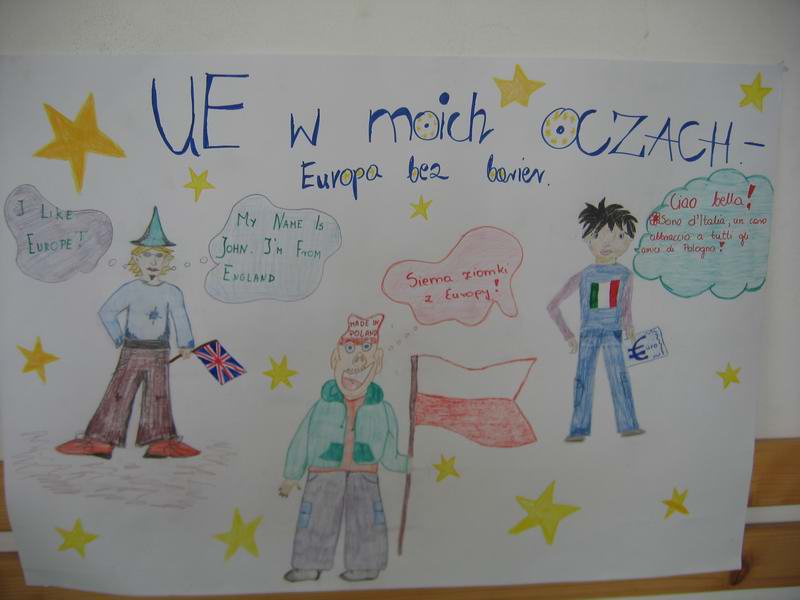 UE w moich OCZACH -
Europa bez barier.
I LIKE
EUROPE!
MY NAME IS
JOHN. I'M FROM
ENGLAND
Siema ziomki
z Europy!
MADE IN
POLAND
Ciao bella!
Sono d'Italia, un caro
abbraccio a tutti gli
amici di Pologna!
€uro